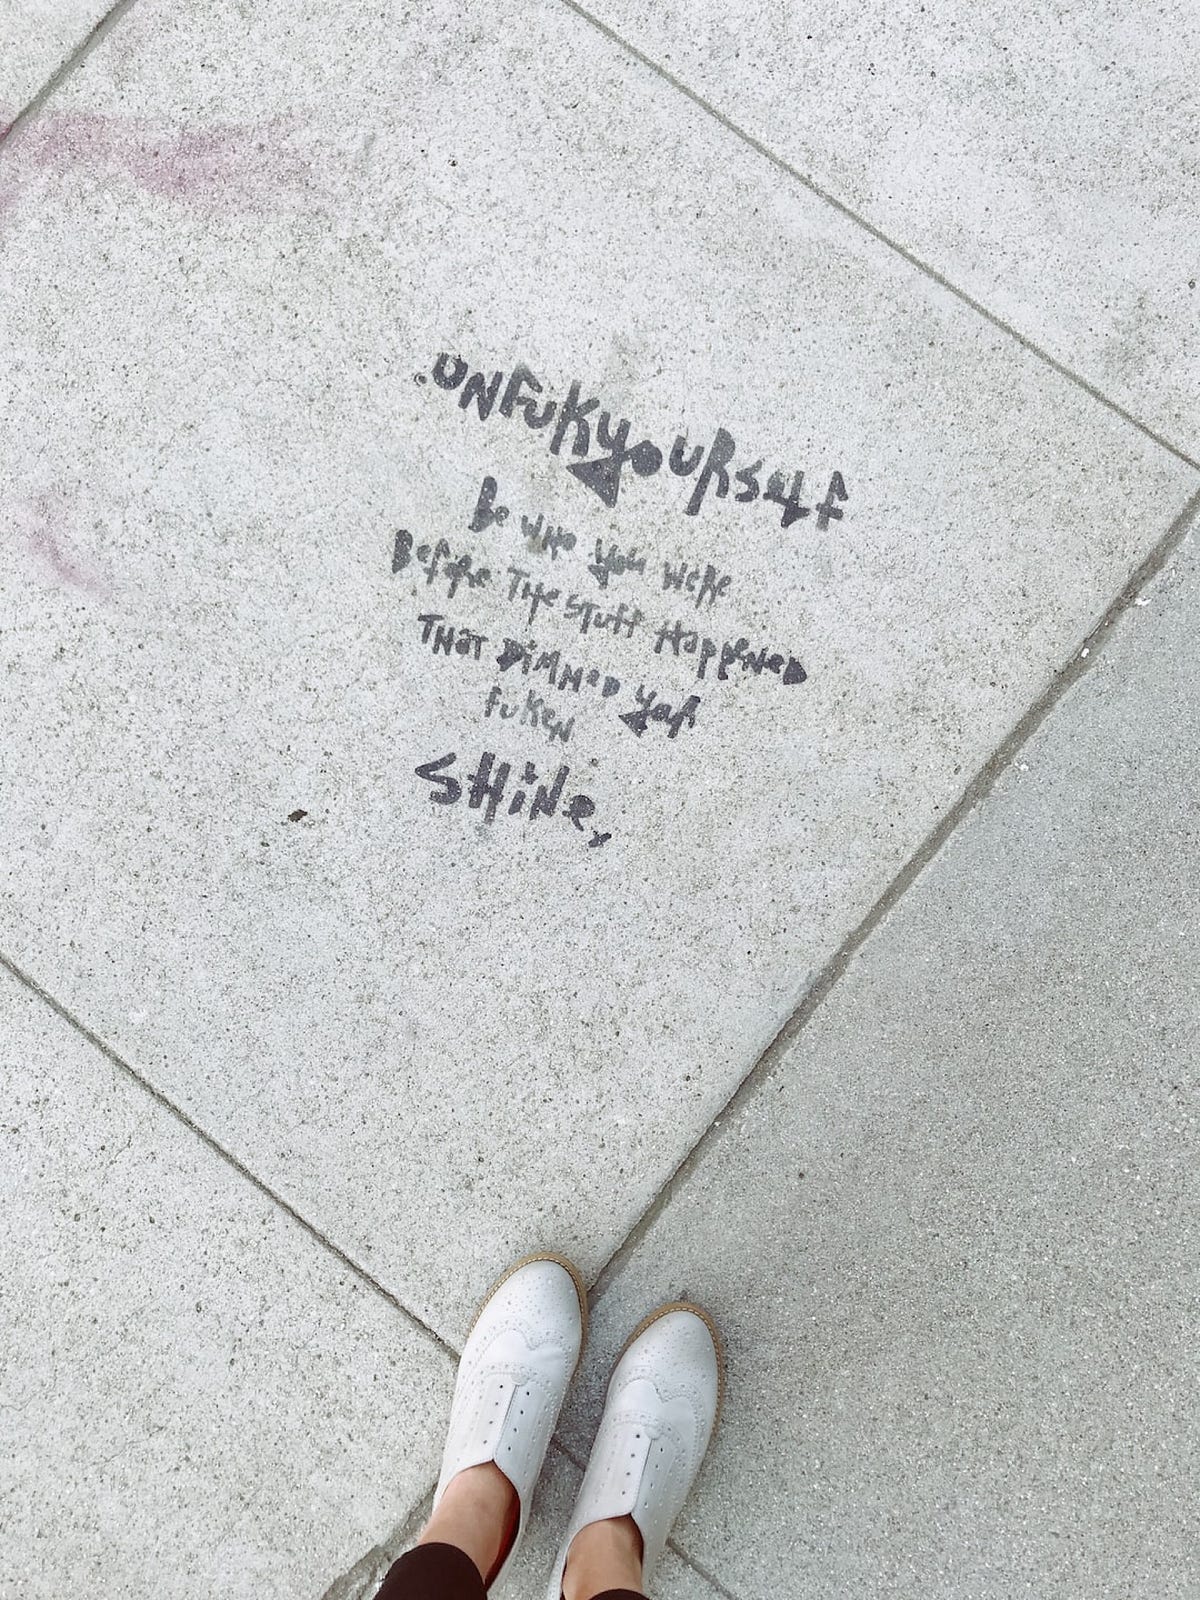 UNFUKYOURSELF
Be WHO YOU WeRe
Before THe STuff HappeNeD
THaT DiMMeD YoR
fuKeN
SHiNe,